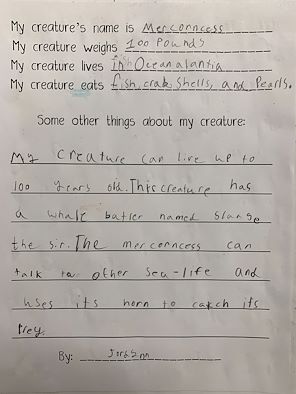 My creature's name is Mercorncess
My creature weighs 100 Pounds
My creature lives in Ocean atlantia
My creature eats fish, crab Shells, and Pearls.
Some other things about my creature:
My creature can live up to
100 years old. This creature has
a whale butler named
the sir. The mercorncess can
talk to other Sea-life and
uses its horn to catch its
Prey.
By: